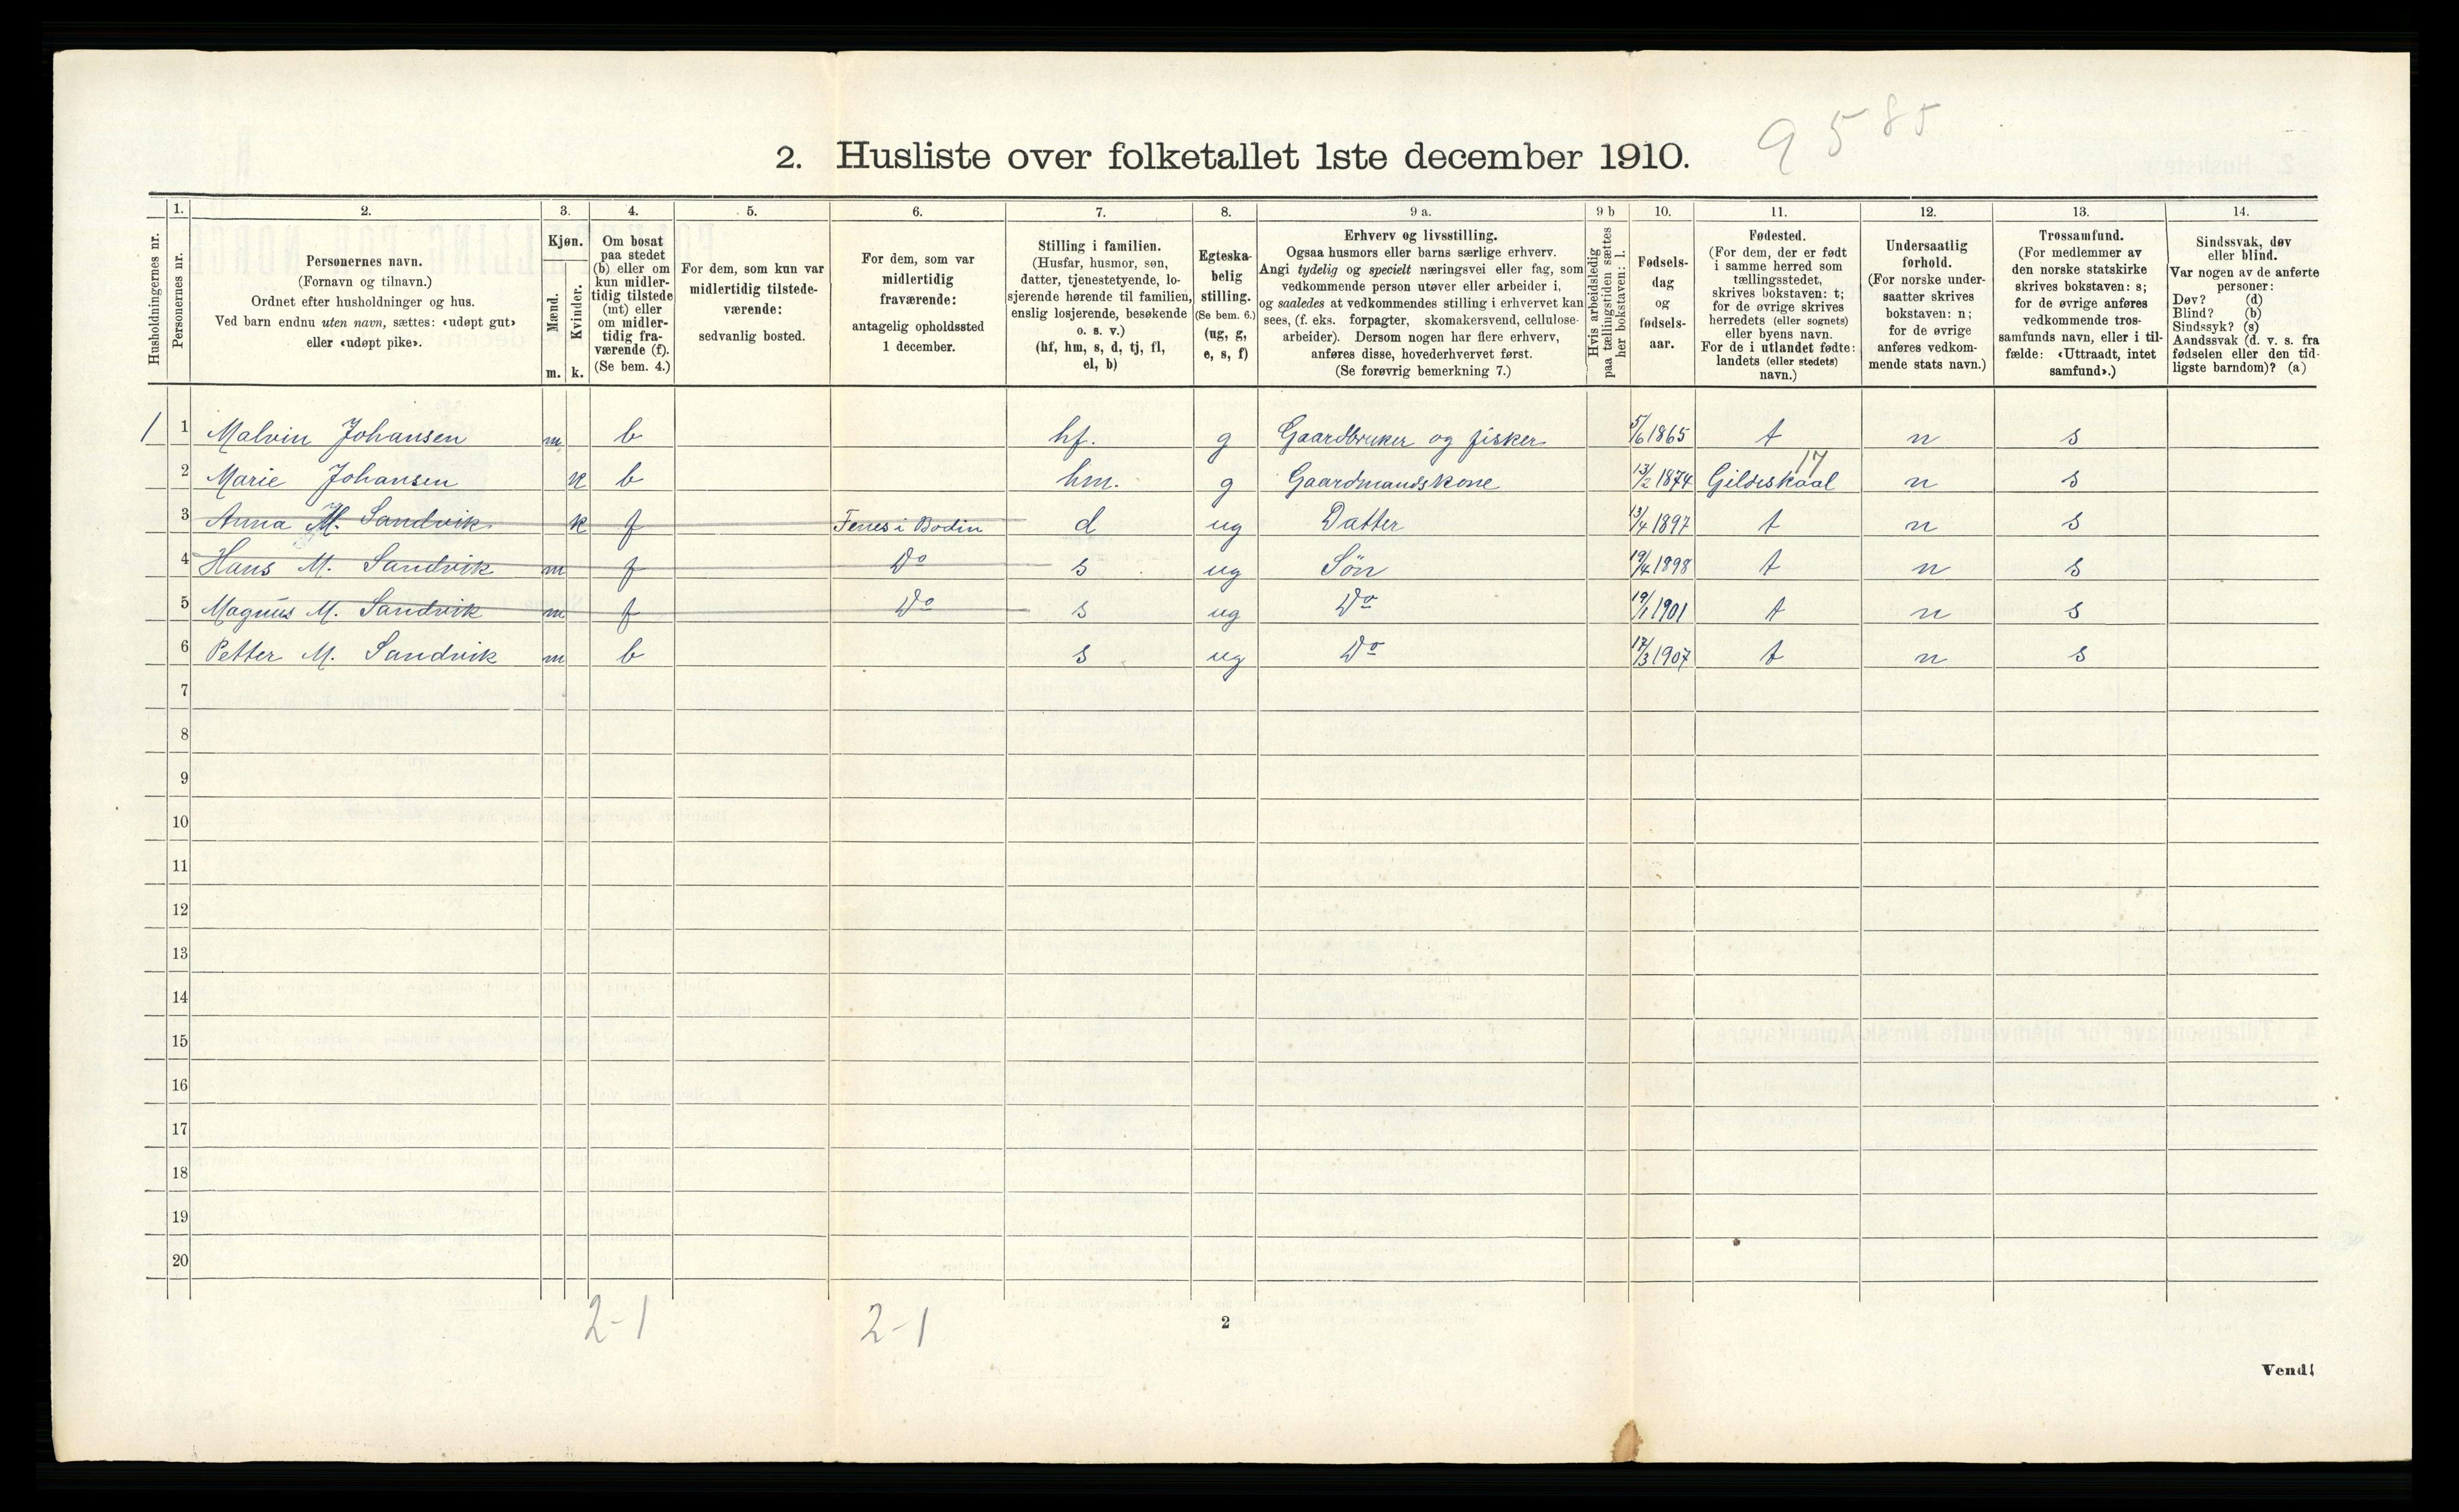 9 5 85
2. Husliste over folketallet 1ste december 1910.
Husholdningernes nr.
1.
Personernes nr.
2.
Personernes navn.
(Fornavn og tilnavn.)
Ordnet efter husholdninger og hus.
Ved barn endnu uten navn, sættes: «udøpt gut»
eller «udøpt pike».
3.
Kjøn.
Mænd.
Kvinder.
m. k.
4.
Om bosat
paa stedet
(b) eller om
kun midler-
tidig tilstede
(mt) eller
om midler-
tidig fra-
værende (f).
(Se bem. 4.)
5.
For dem, som kun var
midlertidig tilstede-
værende:
sedvanlig bosted.
6.
For dem, som var
midlertidig
fraværende:
antagelig opholdssted
1 december.
7.
Stilling i familien.
(Husfar, husmor, søn,
datter, tjenestetyende, lo-
sjerende hørende til familien,
enslig losjerende, besøkende
o. s. v.)
(hf, hm, s, d, tj, fl,
el, b)
8.
Egteska-
belig
stilling.
(Se bem. 6.)
(ug, g,
e, s, f)
9 a.
Erhverv og livsstilling.
Ogsaa husmors eller barns særlige erhverv.
Angi tydelig og specielt næringsvei eller fag, som
vedkommende person utøver eller arbeider i,
og saaledes at vedkommendes stilling i erhvervet kan
sees, (f. eks. forpagter, skomakersvend, cellulose-
arbeider). Dersom nogen har flere erhverv,
anføres disse, hovederhvervet først.
(Se forøvrig bemerkning 7.)
9 b
Hvis arbeidsledig
paa tællingstiden sættes
her bokstaven: l.
10.
Fødsels-
dag
og
fødsels-
aar.
11.
Fødested.
(For dem, der er født
i samme herred som
tællingsstedet,
skrives bokstaven: t;
for de øvrige skrives
herredets (eller sognets)
eller byens navn.
For de i utlandet fødte:
landets (eller stedets)
navn.)
12.
Undersaatlig
forhold.
(For norske under-
saatter skrives
bokstaven: n;
for de øvrige
anføres vedkom-
mende stats navn.)
13.
Trossamfund.
(For medlemmer av
den norske statskirke
skrives bokstaven: s;
for de øvrige anføres
vedkommende tros-
samfunds navn, eller i til-
fælde: «Uttraadt, intet
samfund».)
14.
Sindssvak, døv
eller blind.
Var nogen av de anførte
personer:
Døv? (d)
Blind? (b)
Sindssyk? (s)
Aandssvak (d. v. s. fra
fødselen eller den tid-
ligste barndom)? (a)
1 1 Malvin Johansen m b hf. g Gaardbruker og fisker 5/6 1865 t n s
17
2 Marie Johansen k b hm. g Gaardmandskone 13/2 1874 Gildeskaal n s
3 Anna M. Sandvik k f Fenes i Bodin d ug Datter 13/4 1897 t n s
4 Hans M. Sandvik m f Do s ug Søn 19/4 1898 t n s
5 Magnus M. Sandvik m f Do s ug Do 19/1 1901 t n s
6 Petter M. Sandvik m b s ug Do 17/3 1907 t n s
7
8
9
10
11
12
13
14
15
16
17
18
19
20
2-1 2-1
2
Vend!